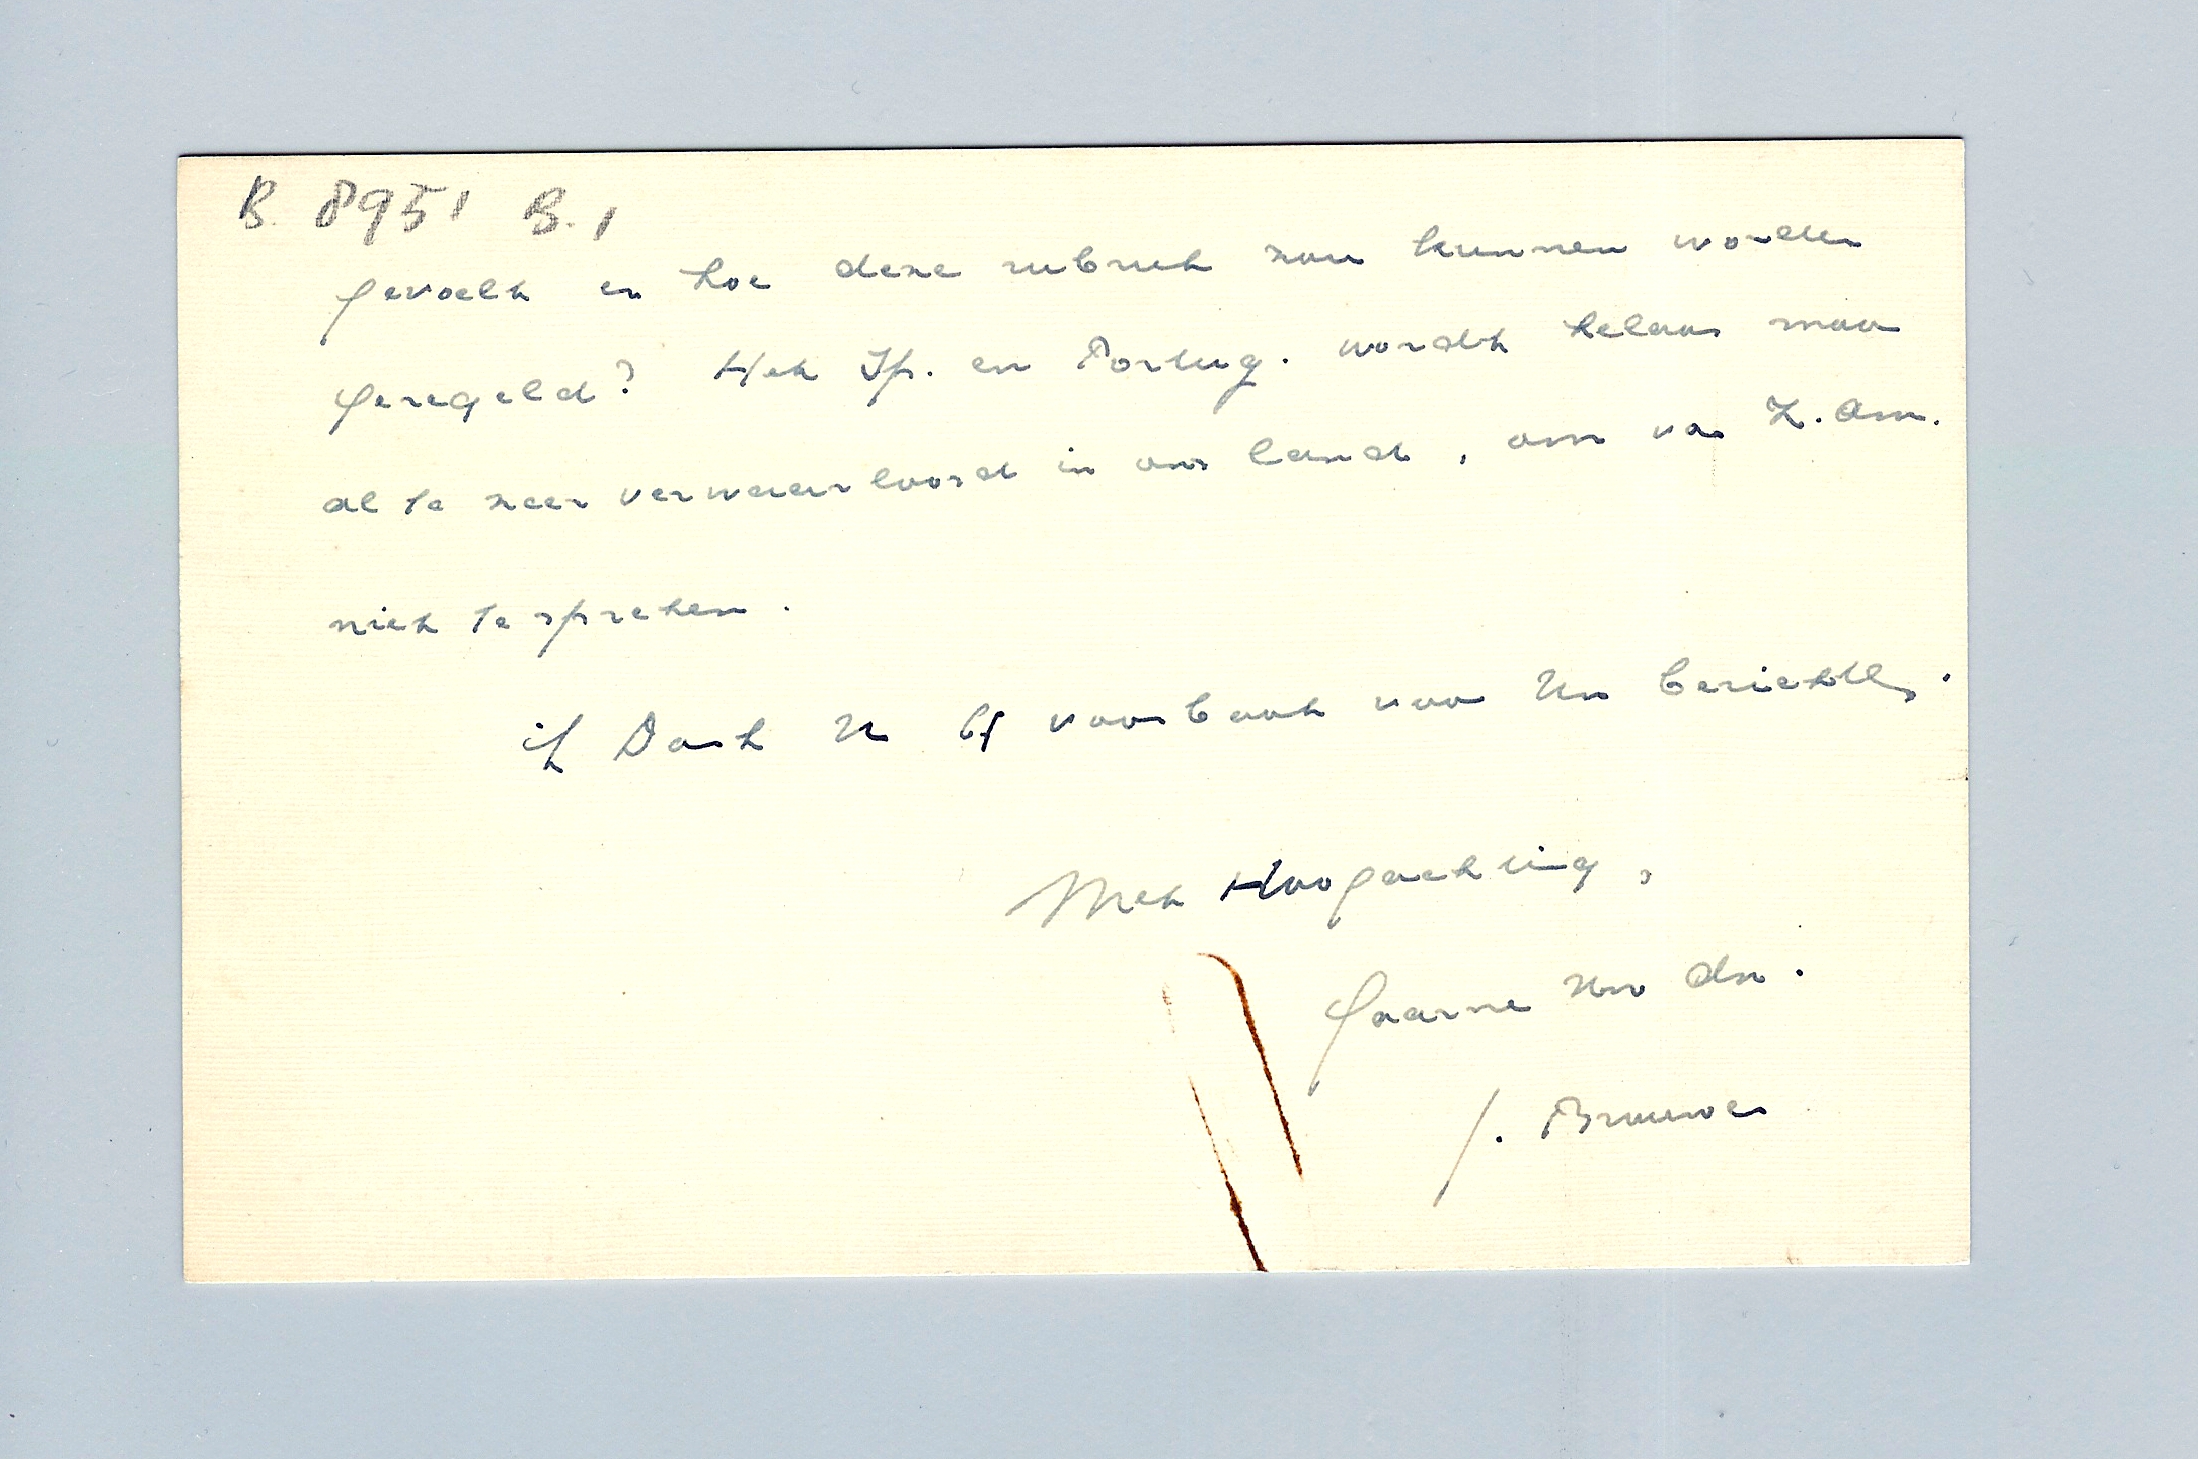 B. 8951 B.1
gevoelt en hoe deze rubriek zou kunnen worden
geregeld? Het Sp. en Portug. wordt helaas maar
al te zeer verwaarloosd in ons land, om van Z. Am.
niet te spreken.
ik Dank U bij voorbaat voor Uw berichten.
Met Hoogachting,
Gaarne Uw dn.
J. Brouwer